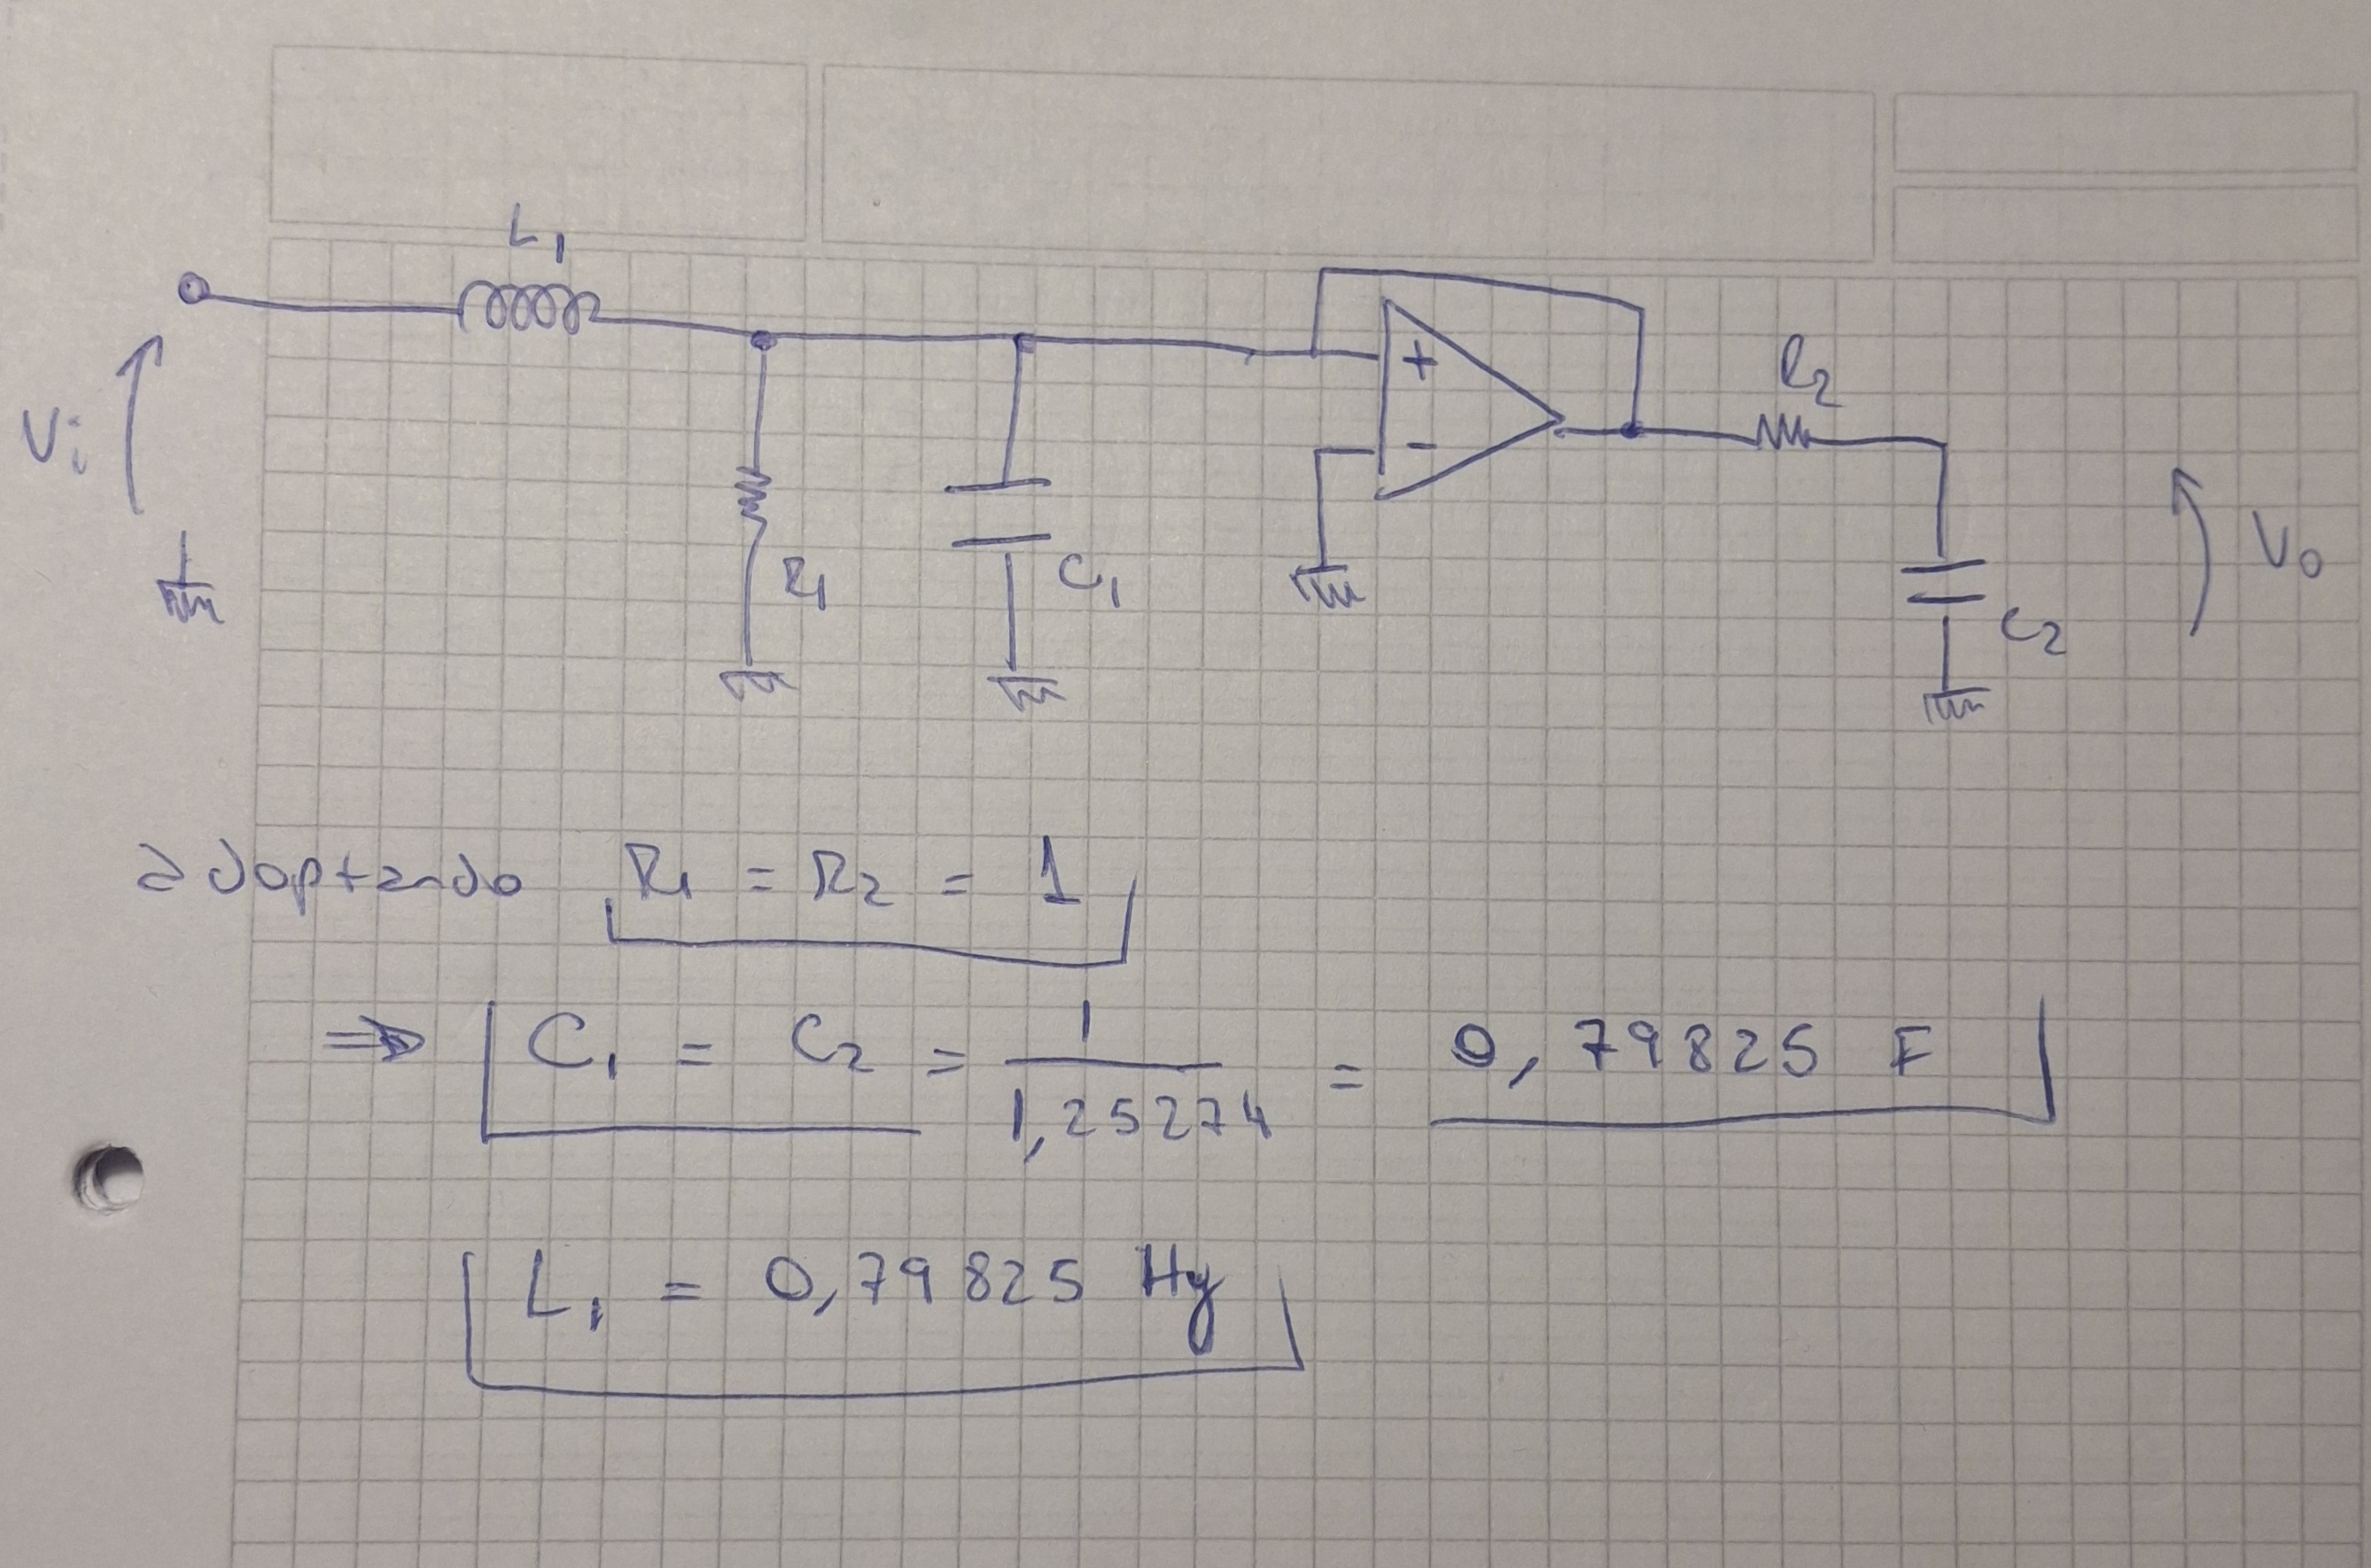 L1
Vi
+
-
R2
R1
C1
C2
Vo
adoptando R1 = R2 = 1
⇒ C1 = C2 = 1 / 1,25274 = 0,79825 F
L1 = 0,79825 Hy